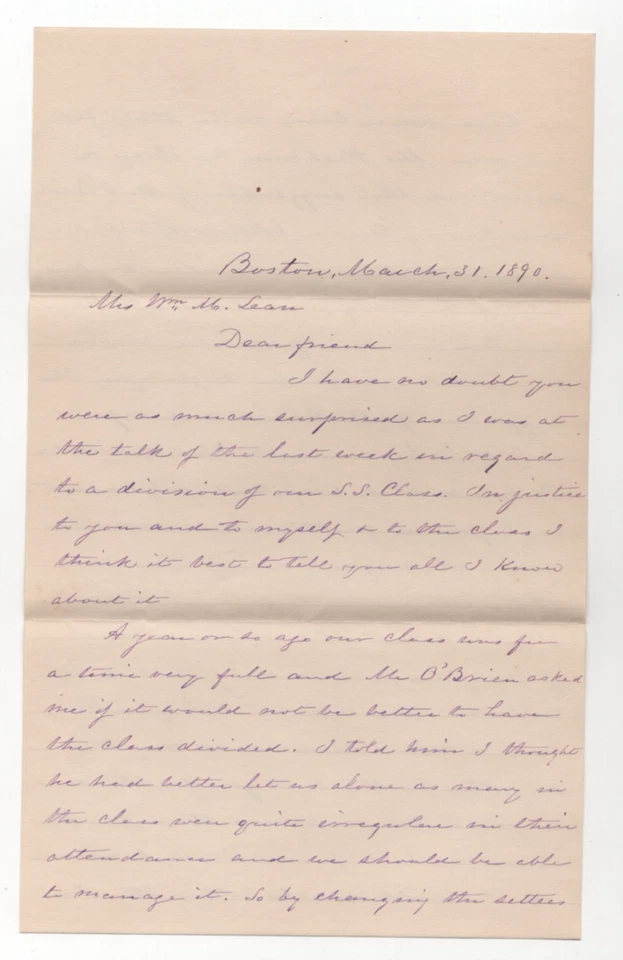 Boston, March, 31. 1890.
Mrs Wm. M. Lean
Dear friend
I have no doubt you
were as much surprised as I was at
the talk of the last week in regard
to a division of our S.S. Class. In justice
to you and to myself & to the class I
think it best to tell you all I know
about it
A year or so ago our class was for
a time very full and Mr O'Brien asked
me if it would not be better to have
the class divided. I told him I thought
he had better let us alone as many in
the class were quite irregular in their
attendance and we should be able
to manage it. So by changing the settees